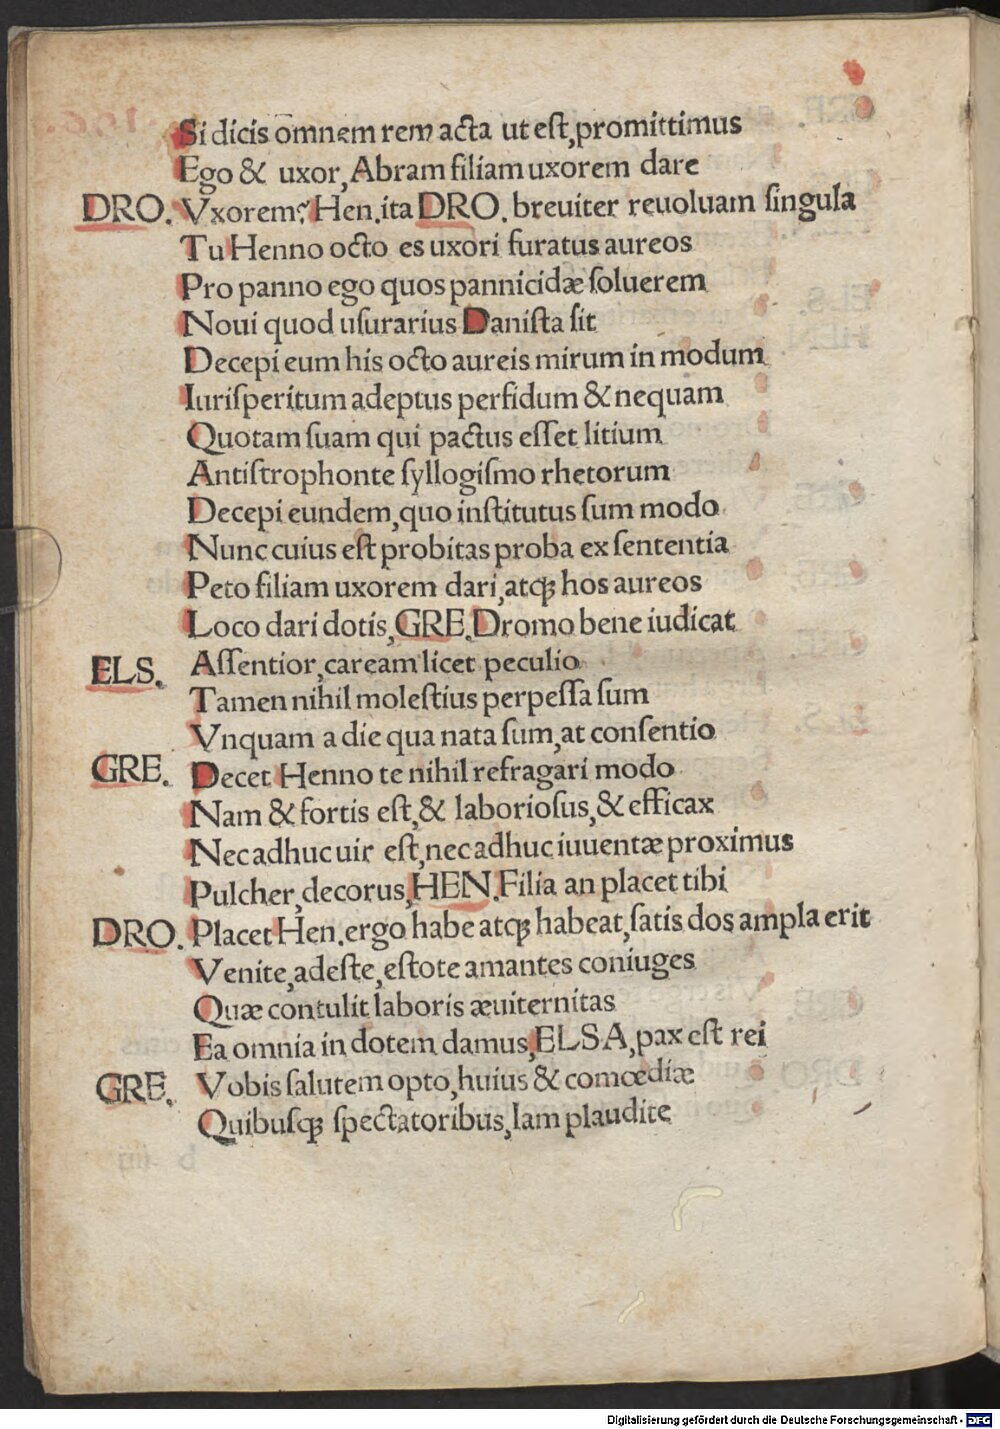 Si dicis om̄nem rem acta ut eſt, promittimus
Ego & uxor, Abram filiam uxorem dare
DRO. Vxorem? Hen. ita DRO. breuiter reuoluam ſingula
Tu Henno octo es uxori furatus aureos
Pro panno ego quos pannicidæ ſoluerem
Noui quod uſurarius Daniſta ſit
Decepi eum his octo aureis mirum in modum
Iuriſperitum adeptus perfidum & nequam
Quotam ſuam qui pactus eſſet litium
Antiſtrophonte ſyllogiſmo rhetorum
Decepi eundem, quo inſtitutus ſum modo
Nunc cuius eſt probitas proba ex ſententia
Peto filiam uxorem dari, atqꝫ hos aureos
Loco dari dotis, GRE. Dromo bene iudicat
ELS. Aſſentior, caream licet peculio
Tamen nihil moleſtius perpeſſa ſum
Vnquam a die qua nata ſum, at conſentio
GRE. Decet Henno te nihil refragari modo
Nam & fortis eſt, & laborioſus, & efficax
Nec adhuc uir eſt, nec adhuc iuuentæ proximus
Pulcher, decorus, HEN. Filia an placet tibi
DRO. Placet Hen. ergo habe atqꝫ habeat, ſatis dos ampla erit
Venite, adeſte, eſtote amantes coniuges
Quæ contulit laboris æuiternitas
Ea omnia in dotem damus, ELSA, pax eſt rei
GRE. Vobis ſalutem opto, huius & comœdiæ
Quibuſqꝫ ſpectatoribus, Iam plaudite
Digitalisierung gefördert durch die Deutsche Forschungsgemeinschaft - DFG